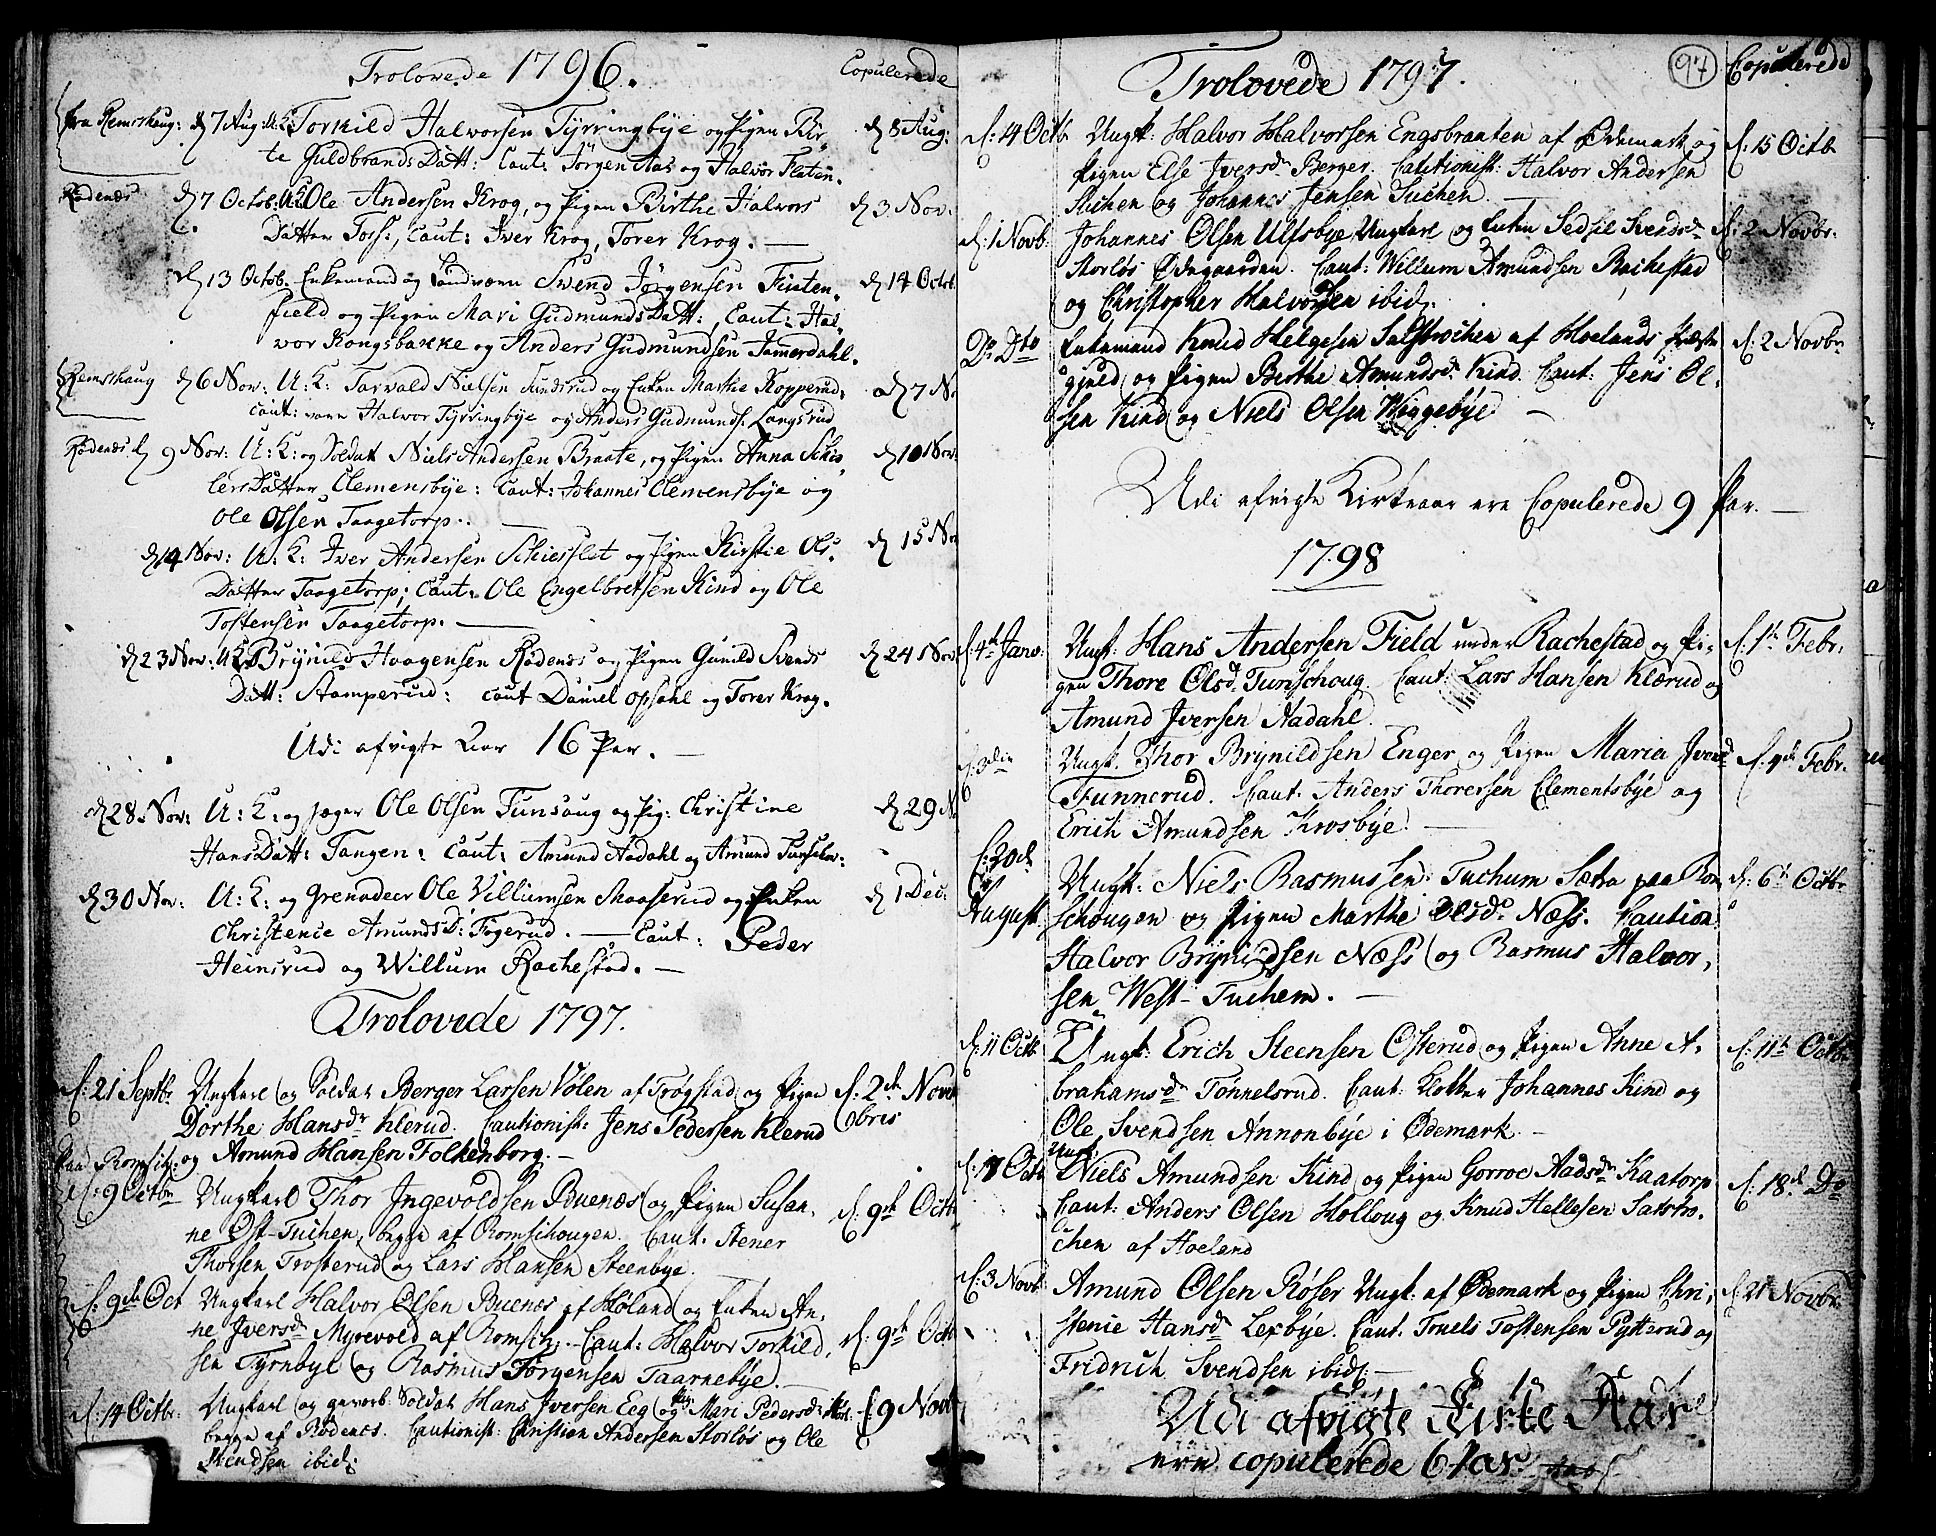 Trolovede 1796. Copulerede
fra Remskoug: d 7 Aug: U:K: Torkild Halvorsen Tyrringbye og Pigen Bir- d 8 Aug:
te Guldbrands Datt: Caut: Jörgen Aas og Halvor Flaten.
Rödenæs d 7 Octob: U:K: Ole Andersen Krog, og Pigen Birthe Halvors d 3 Nov:
Datter Torp:, Caut: Iver Krog, Torer Krog. —
d 13 Octob. Enkemand og Landværn Svend Jörgensen Fiesten- d 14 Octob.
field og Pigen Mari Gudmunds Datt:, Caut: Hal-
vor Kongsbakke og Anders Gudmundsen Jamerdahl.
Remskoug d 6 Nov: U: K: Torvald Nielsen Sundsrud og Enken Marthe Kopperud. d 7 N.
Caut: vare Halvor Tyrringbye og Anders Gudmunds: Langsrud
Rödenæs d 9 Nov: U: K: og Soldat Niels Andersen Braate, og Pigen Anna Nils d 10 Nov.
lers Datter Clemensbye: Caut: Johannes Clemensbye og
Ole Olsen Taagetorp. —
d 14 Nov: U: K: Iver Andersen Skiesflet og Pigen Kirstie Ols- d 15 Nov
Datter Taagetorp; Caut: Ole Engelbretsen Kind og Ole
Tostensen Taagetorp. —
d 23 Nov: U:K: Brynild Haagensen Rödenæs og Pigen Gunild Svends d 24 Nov
Datt: Stamperud: Caut Daniel Opsahl og Torer Krog.
Udi afvigte Aar 16 Par. —
d 28 Nov: U: K: og Jæger Ole Olsen Tunsoug og Pig: Christine d 29 N
Hans Datt: Tangen: Caut: Amund Aadahl og Amund Tunschov:
d 30 Nov: U: K: og Grenadeer Ole Villumsen Maaserud og Enken d 1 Dec:
Christence Amunds D: Fogerud. — Caut: Peder
Heinsrud og Willum Rachestad. —
Trolovede 1797.
d: 21 Septbr Ungkarl og Soldat Berger Larsen Volen af Trogstad og Pigen d: 2d Novem
Dorthe Hansdr Klerud. Cautionist: Jens Pedersen Klerud bris
og Amund Hansen Folkenborg. —
paa Romskg:
d: 9 Octbr Ungkarl Thor Ingevoldsen Buenæs og Pigen Susan- d: 9de Octb
ne Öst-Tuchen, begge af Romschougen. Caut: Stener
Thorsen Trosterud og Lars Hansen Steenbye.
d: 9de Oct Ungkarl Halvor Olsen Buenæs af Höland og Enken An-
ne Iversdr Myrevold af Romsch:. Caut: Halvor Torkild- d: 9de Octb
sen Tyrnbye og Rasmus Jørgensen Taarnebye.
d: 14 Octbr: Ungkarl og gevorb: Soldat Hans Iversen Eeg og Pig: Mari Pedersdr d: 9 Novb
begge af Rödenes. Cautionist: Christian Andersen Storløs og Ole
Svendsen ibid:
Trolovede 1797. 97 Copulerede
d: 4 Octb Ungk: Halvor Halvorsen Engsbraaten af Ødemark og d: 15 Octb
Pigen Else Iversdr Berger. Cautionist: Halvor Andersen
Tuchen og Johannes Jensen Tuchen. —
d: 1 Novb: Johannes Olsen Ulfsbye Ungkarl og Enken Sedsil Svendsdr d: 2 Novbr:
Storløs Ødegaarden. Caut: Willum Amundsen Rachestad
og Christopher Halvorsen ibid:
Do Dto Enkemand Knud Helgesen Salstrochen af Hoelands Præste- d: 2 Novbr
gjeld og Pigen Birthe Amundsdr Kind. Caut: Jens Ol-
sen Kind og Niels Olsen Wiggebye —
Udi afvigte Kirkeaar ere Copulerede 9 Par. —
1798
d: 4de Janv: Ungk: Hans Andersen Field under Rachestad og Pi- d: 1te Febr:
gen Thore Olsd. Tunschoug Caut: Lars Hansen Klærud og
Amund Iversen Aadahl.
d: 3die Ungk. Thor Brynildsen Enger og Pigen Maria Iversd d: 4de Febr.
Funnerud. Caut: Anders Thoresen Clementsbye og
Erich Amundsen Krosbye. —
d: 20de August Ungk: Niels Rasmussen Tuchum Sætra paa Rom- d: 6te Octbr
schougen og Pigen Marthe Olsdr Næss. Caution:
Halvor Brynildsen Næss og Rasmus Halvor-
sen West-Tuchem. —
d: 11 Octb Ungk: Erich Steensen Osterud og Pigen Anne A- d: 11te Octbr
brahamsdr Tönnelsrud. Caut: Klokker Johannes Kind og
Ole Svendsen Annonbye i Ødemark. —
d: 17 Octb Ungk: Niels Amundsen Kind og Pigen Gorroe Aadsdr Kaatorp d: 18d Do
Caut: Anders Olsen Holloug og Knud Hellesen Salstro-
chen af Hoeland
d: 3 Novb: Amund Olsen Røser Ungk. af Ødemark og Pigen Chri- d: 21 Novbr.
stenie Hansdr Lexbye. Caut. Truels Tostensen Pytterud og
Fridrich Svendsen ibid: —
Udi afvigte Kirke Aar
ere copulerede 6 Par